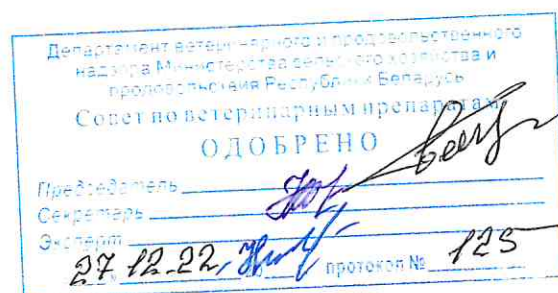 Департамент ветеринарного и продовольственного
надзора Министерства сельского хозяйства и
продовольствия Республики Беларусь
Совет по ветеринарным препаратам
ОДОБРЕНО
Председатель
Секретарь
Эксперт
27.12.22, протокол № 125